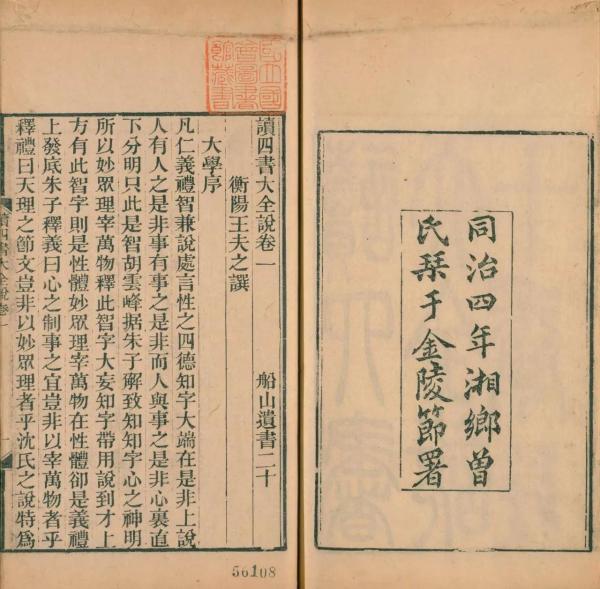 同治四年湘鄉曾
氏栞于金陵節署
讀四書大全說卷一　船山遺書二十
衡陽王夫之譔
大學序
凡仁義禮智兼說處言性之四德知字大端在是非上說
人有人之是非事有事之是非而人與事之是非心裏直
下分明只此是智胡雲峰據朱子解致知知字心之神明
所以妙眾理宰萬物釋此智字大妄知字帶用說到才上
方有此智字則是性體妙眾理宰萬物在性體卻是義禮
上發底朱子釋義曰心之制事之宜豈非以宰萬物者乎
釋禮曰天理之節文豈非以妙眾理者乎沈氏之說特爲
讀四書大全說卷一
一
56108